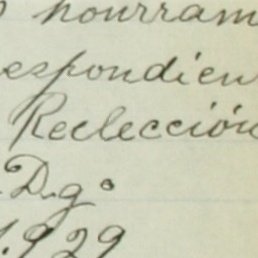 hourram
espondien
Reelección
D.gº
1929